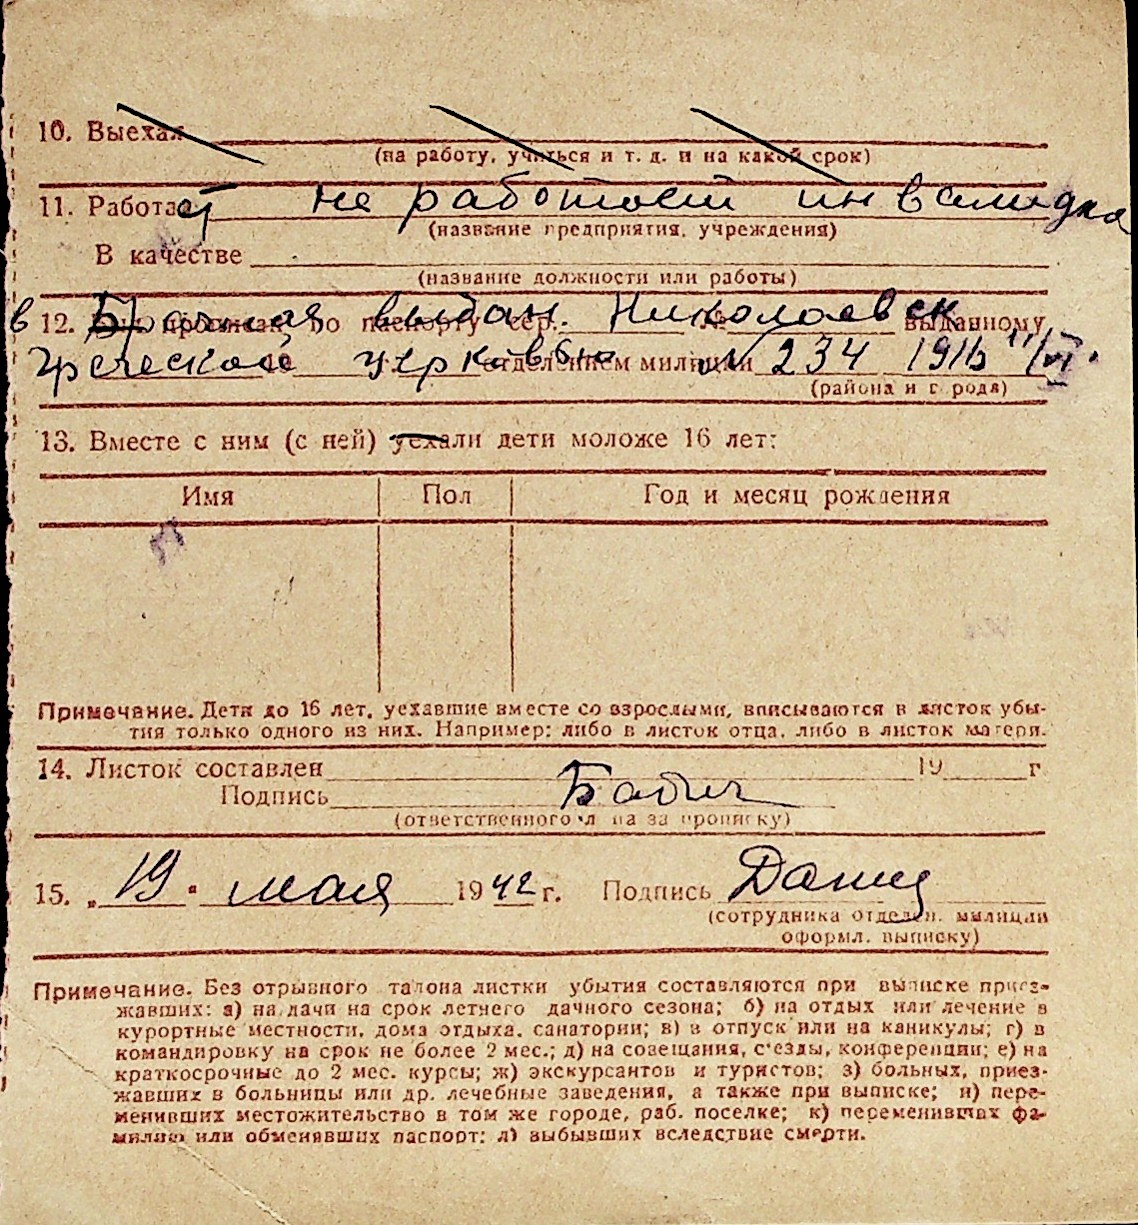 10. Выехал
(на работу, учиться и т. д. и на какой срок)
11. Работает не работает инвалидка
(название предприятия, учреждения)
В качестве
(название должности или работы)
в 12. по паспорту сер. выдан. Николаевск выданному
греческой церковью отделением милиции № 234 1916 11/VI.
(района и города)
13. Вместе с ним (с ней) уехали дети моложе 16 лет:
Имя Пол Год и месяц рождения
Примечание. Дети до 16 лет, уехавшие вместе со взрослыми, вписываются в листок убы-
тия только одного из них. Например: либо в листок отца, либо в листок матери.
14. Листок составлен 19 г
Подпись Бабич
(ответственного л на за прописку)
15. „ 19 " мая 1942 г. Подпись
(сотрудника отделен. милиции
оформл. выписку)
Примечание. Без отрывного талона листки убытия составляются при выписке приез-
жавших: а) на дачи на срок летнего дачного сезона; б) на отдых или лечение в
курортные местности, дома отдыха, санатории; в) в отпуск или на каникулы; г) в
командировку на срок не более 2 мес.; д) на совещания, съезды, конференции; е) на
краткосрочные до 2 мес. курсы; ж) экскурсантов и туристов; з) больных, приез-
жавших в больницы или др. лечебные заведения, а также при выписке; и) пере-
менивших местожительство в том же городе, раб. поселке; к) переменивших фа-
милию или обменявших паспорт; л) выбывших вследствие смерти.